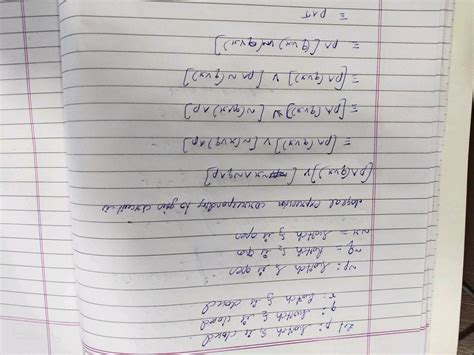 Let p: Switch S₁ is closed
q: Switch S₂ is closed
r: Switch S₃ is closed
~p: Switch S₁ is open
~q = Switch S₂ is open
~r = Switch S₃ is open
logical expression corresponding to given circuit is
[p∧(q∨r)] ∨ [~r∧~q∧p]
≡ [p∧(q∨r)] ∨ [~(r∨q)∧p]
≡ [p∧(q∨r)] ∨ [~(q∨r)∧p]
≡ [p∧(q∨r)] ∨ [p∧~(q∨r)]
≡ p∧[(q∨r)∨~(q∨r)]
≡ p∧T